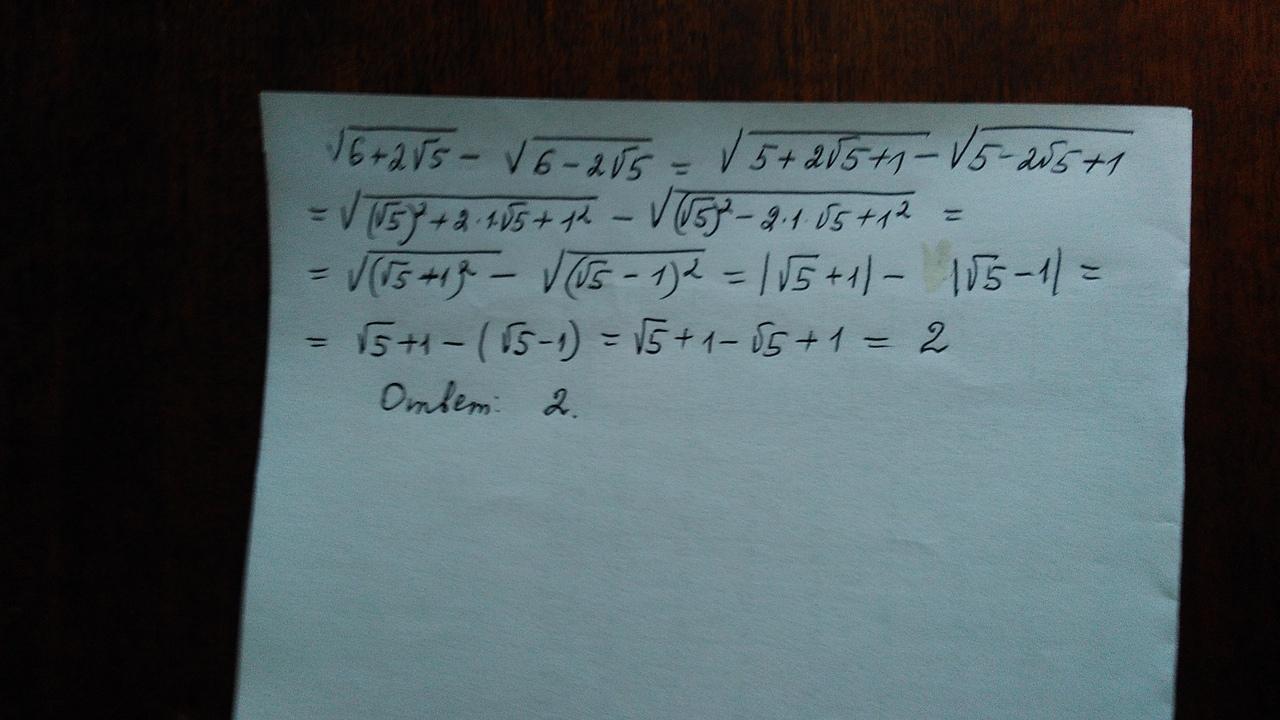 √(6+2√5) - √(6-2√5) = √(5+2√5+1) - √(5-2√5+1)
= √((√5)²+2·1·√5+1²) - √((√5)²-2·1·√5+1²) =
= √((√5+1)²) - √((√5-1)²) = |√5+1| - |√5-1| =
= √5+1-(√5-1) = √5+1-√5+1 = 2
Ответ: 2.